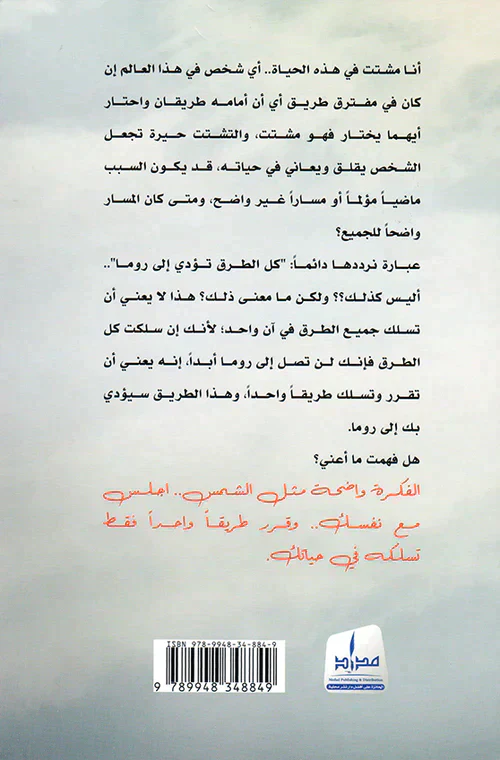 أنا مشتت في هذه الحياة.. أي شخص في هذا العالم إن
كان في مفترق طريق أي أن أمامه طريقان واحتار
أيهما يختار فهو مشتت، والتشتت حيرة تجعل
الشخص يقلق ويعاني في حياته، قد يكون السبب
ماضياً مؤلماً أو مساراً غير واضح، ومتى كان المسار
واضحاً للجميع؟
عبارة نرددها دائماً: "كل الطرق تؤدي إلى روما"..
أليس كذلك؟؟ ولكن ما معنى ذلك؟ هذا لا يعني أن
تسلك جميع الطرق في آن واحد؛ لأنك إن سلكت كل
الطرق فإنك لن تصل إلى روما أبداً، إنه يعني أن
تقرر وتسلك طريقاً واحداً، وهذا الطريق سيؤدي
بك إلى روما.
هل فهمت ما أعني؟
الفكرة واضحة مثل الشمس.. اجلس
مع نفسك.. وقرر طريقاً واحداً فقط
تسلكه في حياتك.
ISBN 978-9948-34-884-9
9 789948 348849
مداد
Medad Publishing & Distribution